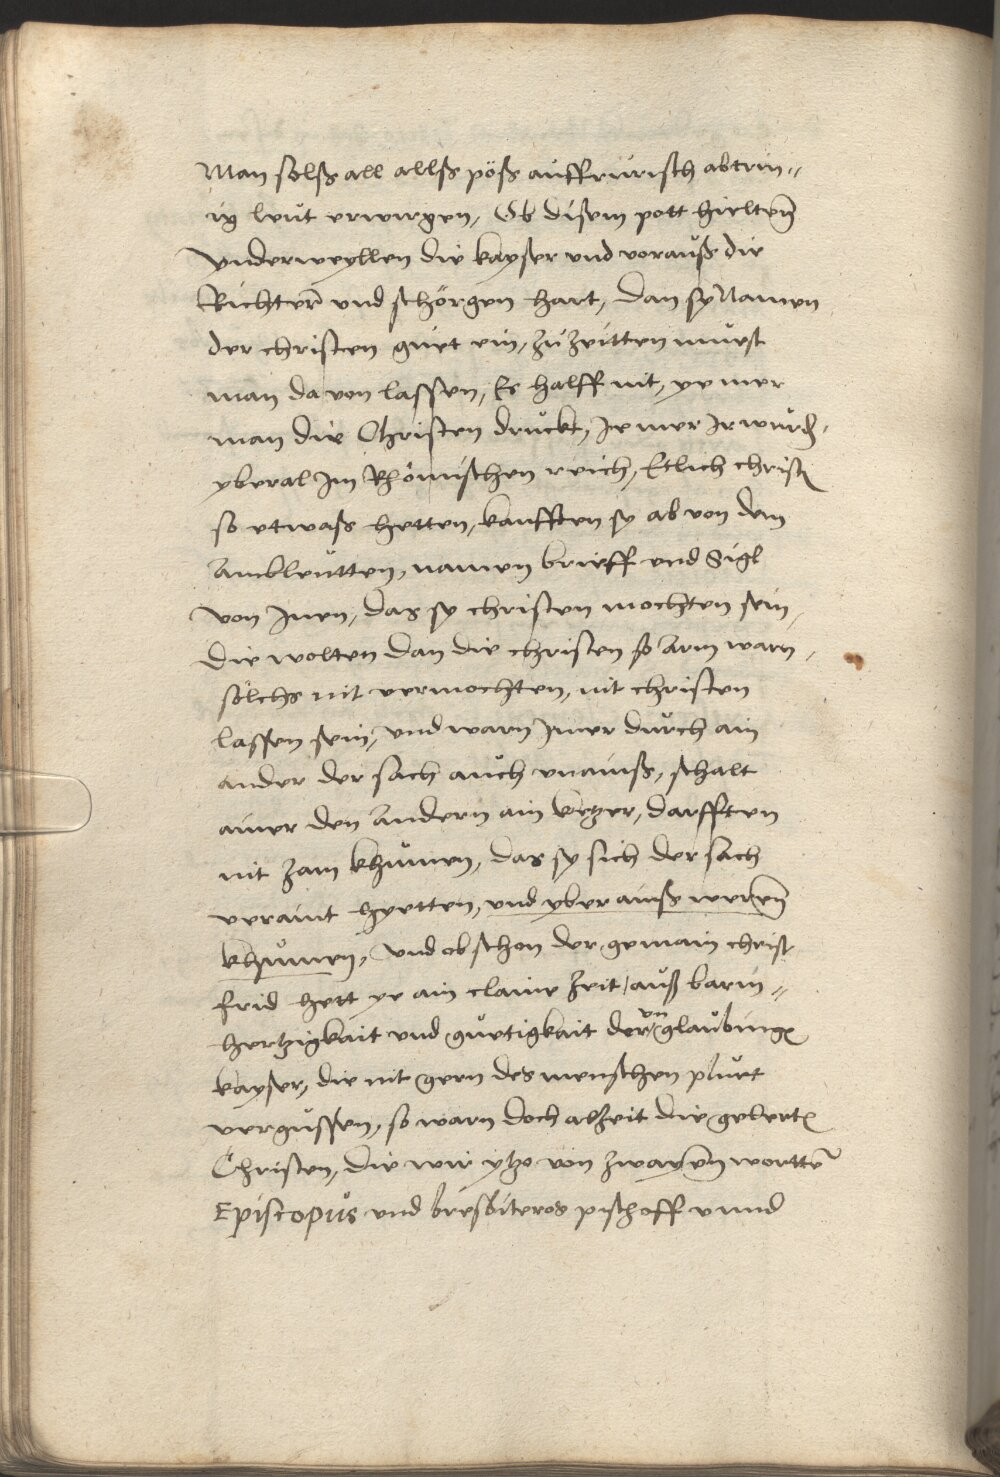 Man solß all allß pöß auffrürisch abtrin„
ig leut erwürgen, Ob disem pott hieltenn
vnderweyllen die kayser vnd vorauß die
Richterr vnd schörgen hart, dan sy Namen
der christen guet ein, zu zeitten muest
man da von lassen, Es halff nit, ye mer
man die Christen druckt, Je mer Ir wurdn
yberal Im Rhömischen reich, Etlich christn
so etwaß hetten, kaufften sy ab von den
Ambleutten, namen brieff vnd Sigl
von Inen, das sy christen mochten sein,
die wolten dan die christen so Arm warn,
sölchs nit vermochten, nit christen
lassen sein, vnd warn Jmer durch ain
ander der sach auch vnainß, schalt
ainer den Andern ain ketzer, dorfften
nit zam khumen, das sy sich der sach
veraint hetten, vnd yber ainß werenn
khumen, vnd ob schon der gemain christ
frid hett ye ain claine zeit, auß barm„
hertzigkait vnd guetigkait der vnglaubingn
kayser, die nit gern des menschen pluet
vergussen, so warn doch alzeit die gelertn
Christen, die wir ytzo von zwayenn worttn
Episcopus vnd bresbiteros pischoff vnnd